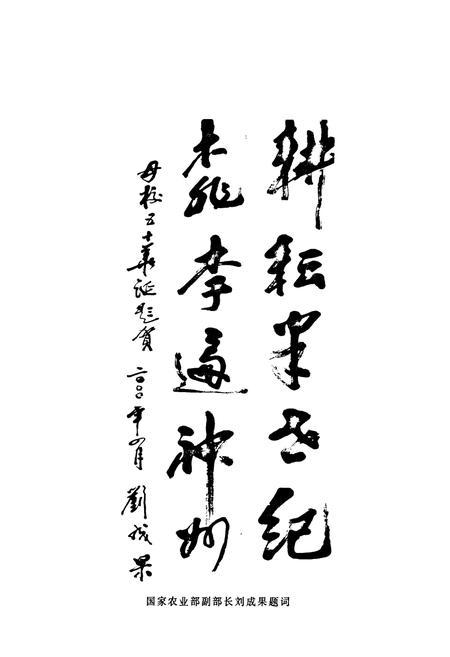 耕耘半世纪
桃李遍神州
母校五十华诞题贺 二〇〇〇年四月 刘成果
国家农业部副部长刘成果题词